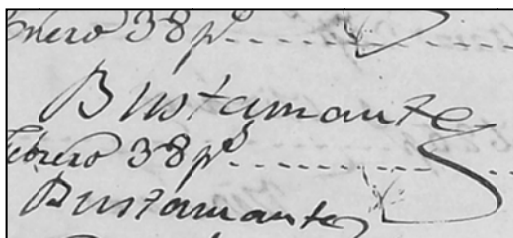 Enero 38 p.s
Bustamante
Febrero 38 p.s
Bustamante